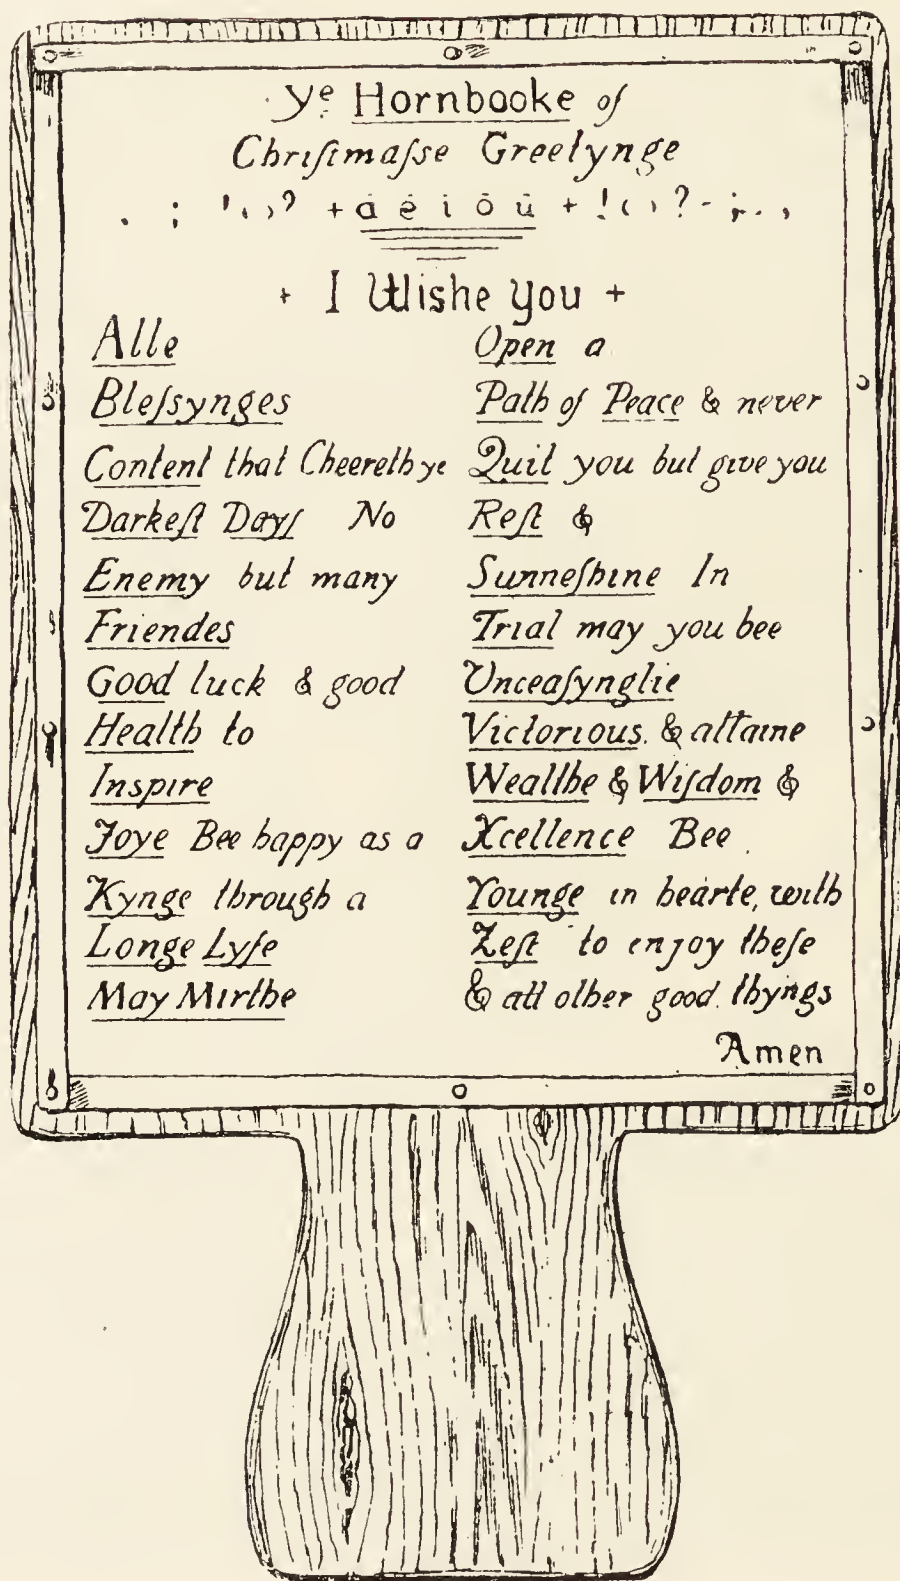 Yᵉ Hornbooke of
Chriſtmaſse Greetynge
. ; ' , ? + a e i o u + ! ( ) ? - ; . ,
+ I Wishe you +
Alle
Bleſsynges
Content that Cheereth ye
Darkeſt Dayſ No
Enemy but many
Friendes
Good luck & good
Health to
Inspire
Joye Bee happy as a
Kynge through a
Longe Lyfe
May Mirthe
Open a
Path of Peace & never
Quit you but give you
Reſt &
Sunneſhine In
Trial may you bee
Unceaſynglie
Victorious. & attaine
Wealthe & Wiſdom &
Xcellence Bee
Younge in hearte, with
Zeſt to enjoy theſe
& all other good thyngs
Amen